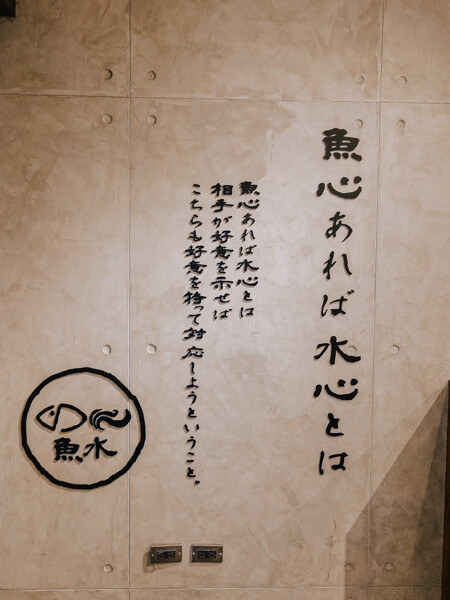 魚心あれば水心とは
魚心あれば水心とは
相手が好意を示せば
こちらも好意を持って対応しようということ。
魚水